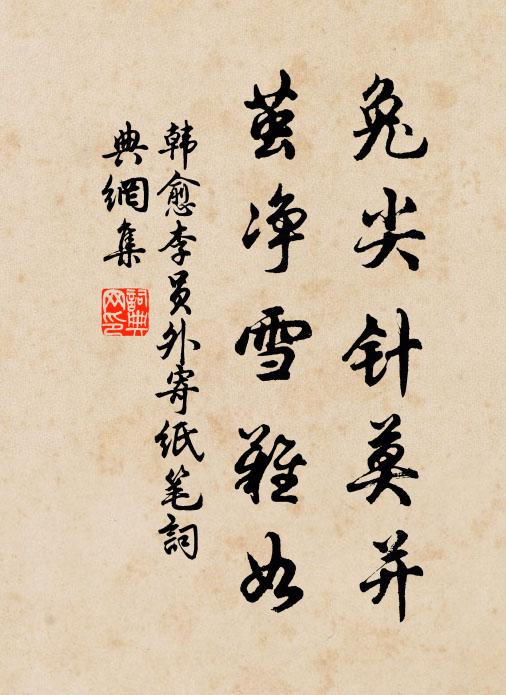 兔尖针莫并
茧净雪难如
韩愈李员外寄纸笔词
典網集
詞典
网印